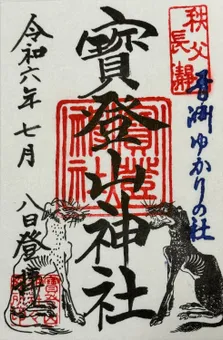 秩父
長瀞
青淵ゆかりの社
寶登山神社
寶登山神社
令和六年七月八日登拝